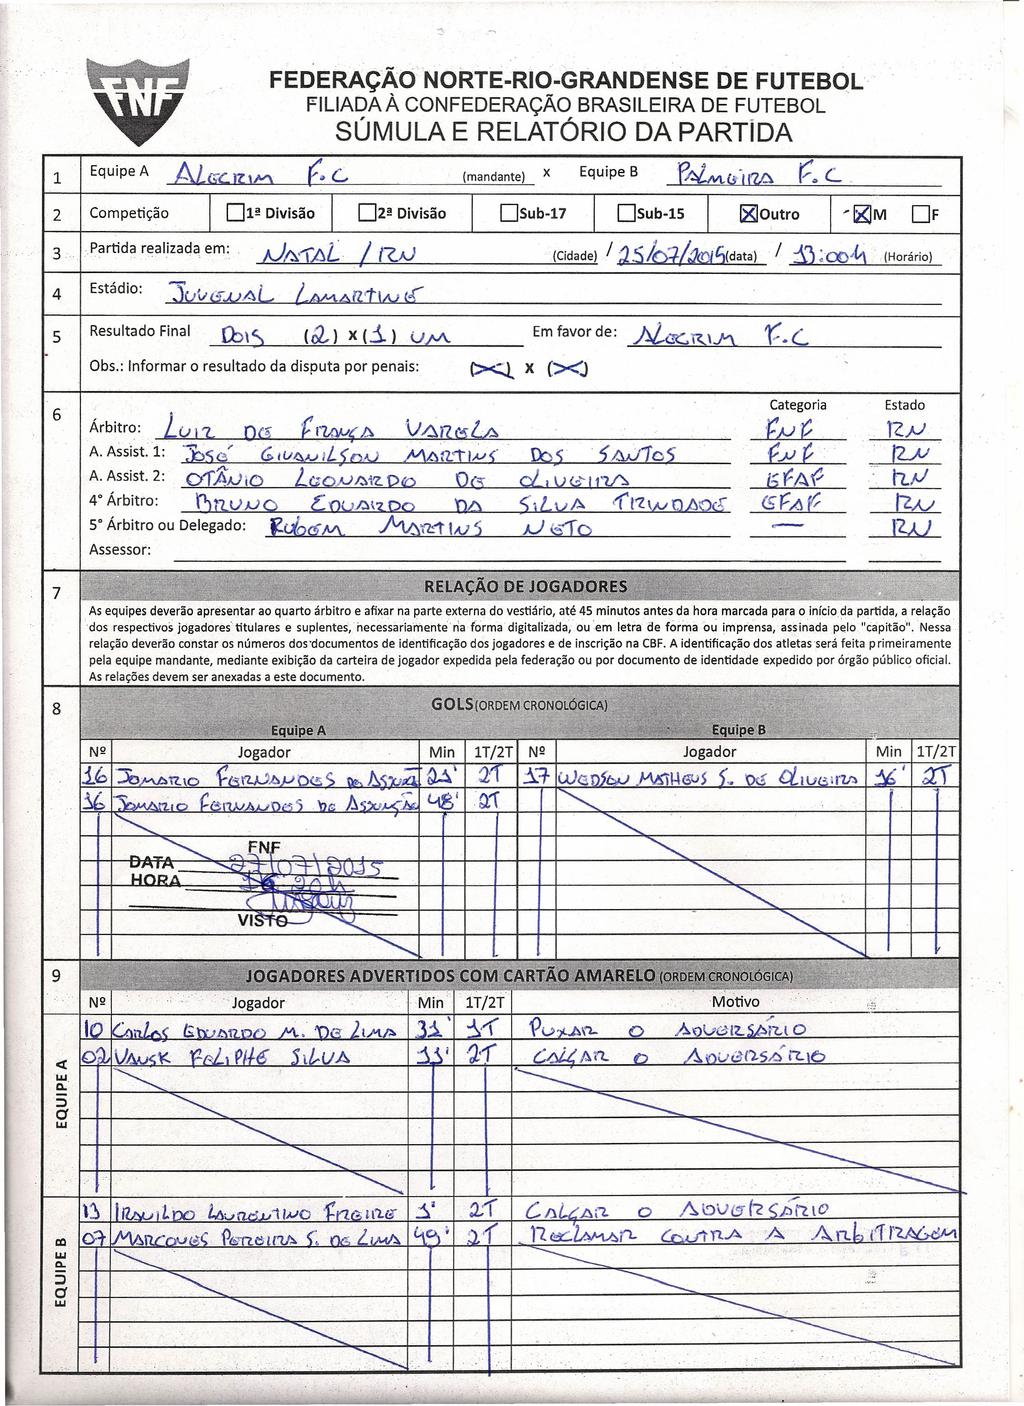 FNF
FEDERAÇÃO NORTE-RIO-GRANDENSE DE FUTEBOL
FILIADA À CONFEDERAÇÃO BRASILEIRA DE FUTEBOL
SÚMULA E RELATÓRIO DA PARTIDA
1 Equipe A ALECRIM F.C (mandante) x Equipe B PALMEIRA F.C.
2 Competição ☐1ª Divisão ☐2ª Divisão ☐Sub-17 ☐Sub-15 ☒Outro ☒M ☐F
3 Partida realizada em: NATAL / RN (Cidade) / 25/07/2015 (data) / 13:00h (Horário)
4 Estádio: JUVENAL LAMARTINE
5 Resultado Final DOIS (2) x (1) UM Em favor de: ALECRIM F.C
Obs.: Informar o resultado da disputa por penais: (X) x (X)
6 Categoria Estado
Árbitro: LUIZ DE FRANÇA VARELA FNF RN
A. Assist. 1: JOSÉ GIVANILSON MARTINS DOS SANTOS FNF RN
A. Assist. 2: OTÂNIO LEONARDO DE OLIVEIRA EFAF RN
4° Árbitro: BRUNO EDUARDO DA SILVA TRINDADE EFAF RN
5° Árbitro ou Delegado: RUBEM MARTINS NETO — RN
Assessor:
7 RELAÇÃO DE JOGADORES
As equipes deverão apresentar ao quarto árbitro e afixar na parte externa do vestiário, até 45 minutos antes da hora marcada para o início da partida, a relação
dos respectivos jogadores titulares e suplentes, necessariamente na forma digitalizada, ou em letra de forma ou imprensa, assinada pelo "capitão". Nessa
relação deverão constar os números dos documentos de identificação dos jogadores e de inscrição na CBF. A identificação dos atletas será feita primeiramente
pela equipe mandante, mediante exibição da carteira de jogador expedida pela federação ou por documento de identidade expedido por órgão público oficial.
As relações devem ser anexadas a este documento.
8 GOLS (ORDEM CRONOLÓGICA)
Equipe A Equipe B
Nº Jogador Min 1T/2T Nº Jogador Min 1T/2T
16 JOMARIO FERNANDES DE ASSUNÇÃO 21' 2T 17 WEDSON MATHEUS S. DE OLIVEIRA 16' 2T
16 JOMARIO FERNANDES DE ASSUNÇÃO 48' 2T
FNF
DATA 27/07/2015
HORA 16:20h
VISTO
9 JOGADORES ADVERTIDOS COM CARTÃO AMARELO (ORDEM CRONOLÓGICA)
Nº Jogador Min 1T/2T Motivo
EQUIPE A
10 CARLOS EDUARDO M. DE LIMA 31' 1T PUXAR O ADVERSÁRIO
02 VAUSK FELIPHE SILVA 11' 2T CALÇAR O ADVERSÁRIO
EQUIPE B
13 IRANILDO LAURENTINO FREIRE 1' 2T CALÇAR O ADVERSÁRIO
07 MARCONES PEREIRA S. DE LIMA 49' 2T RECLAMAR CONTRA A ARBITRAGEM